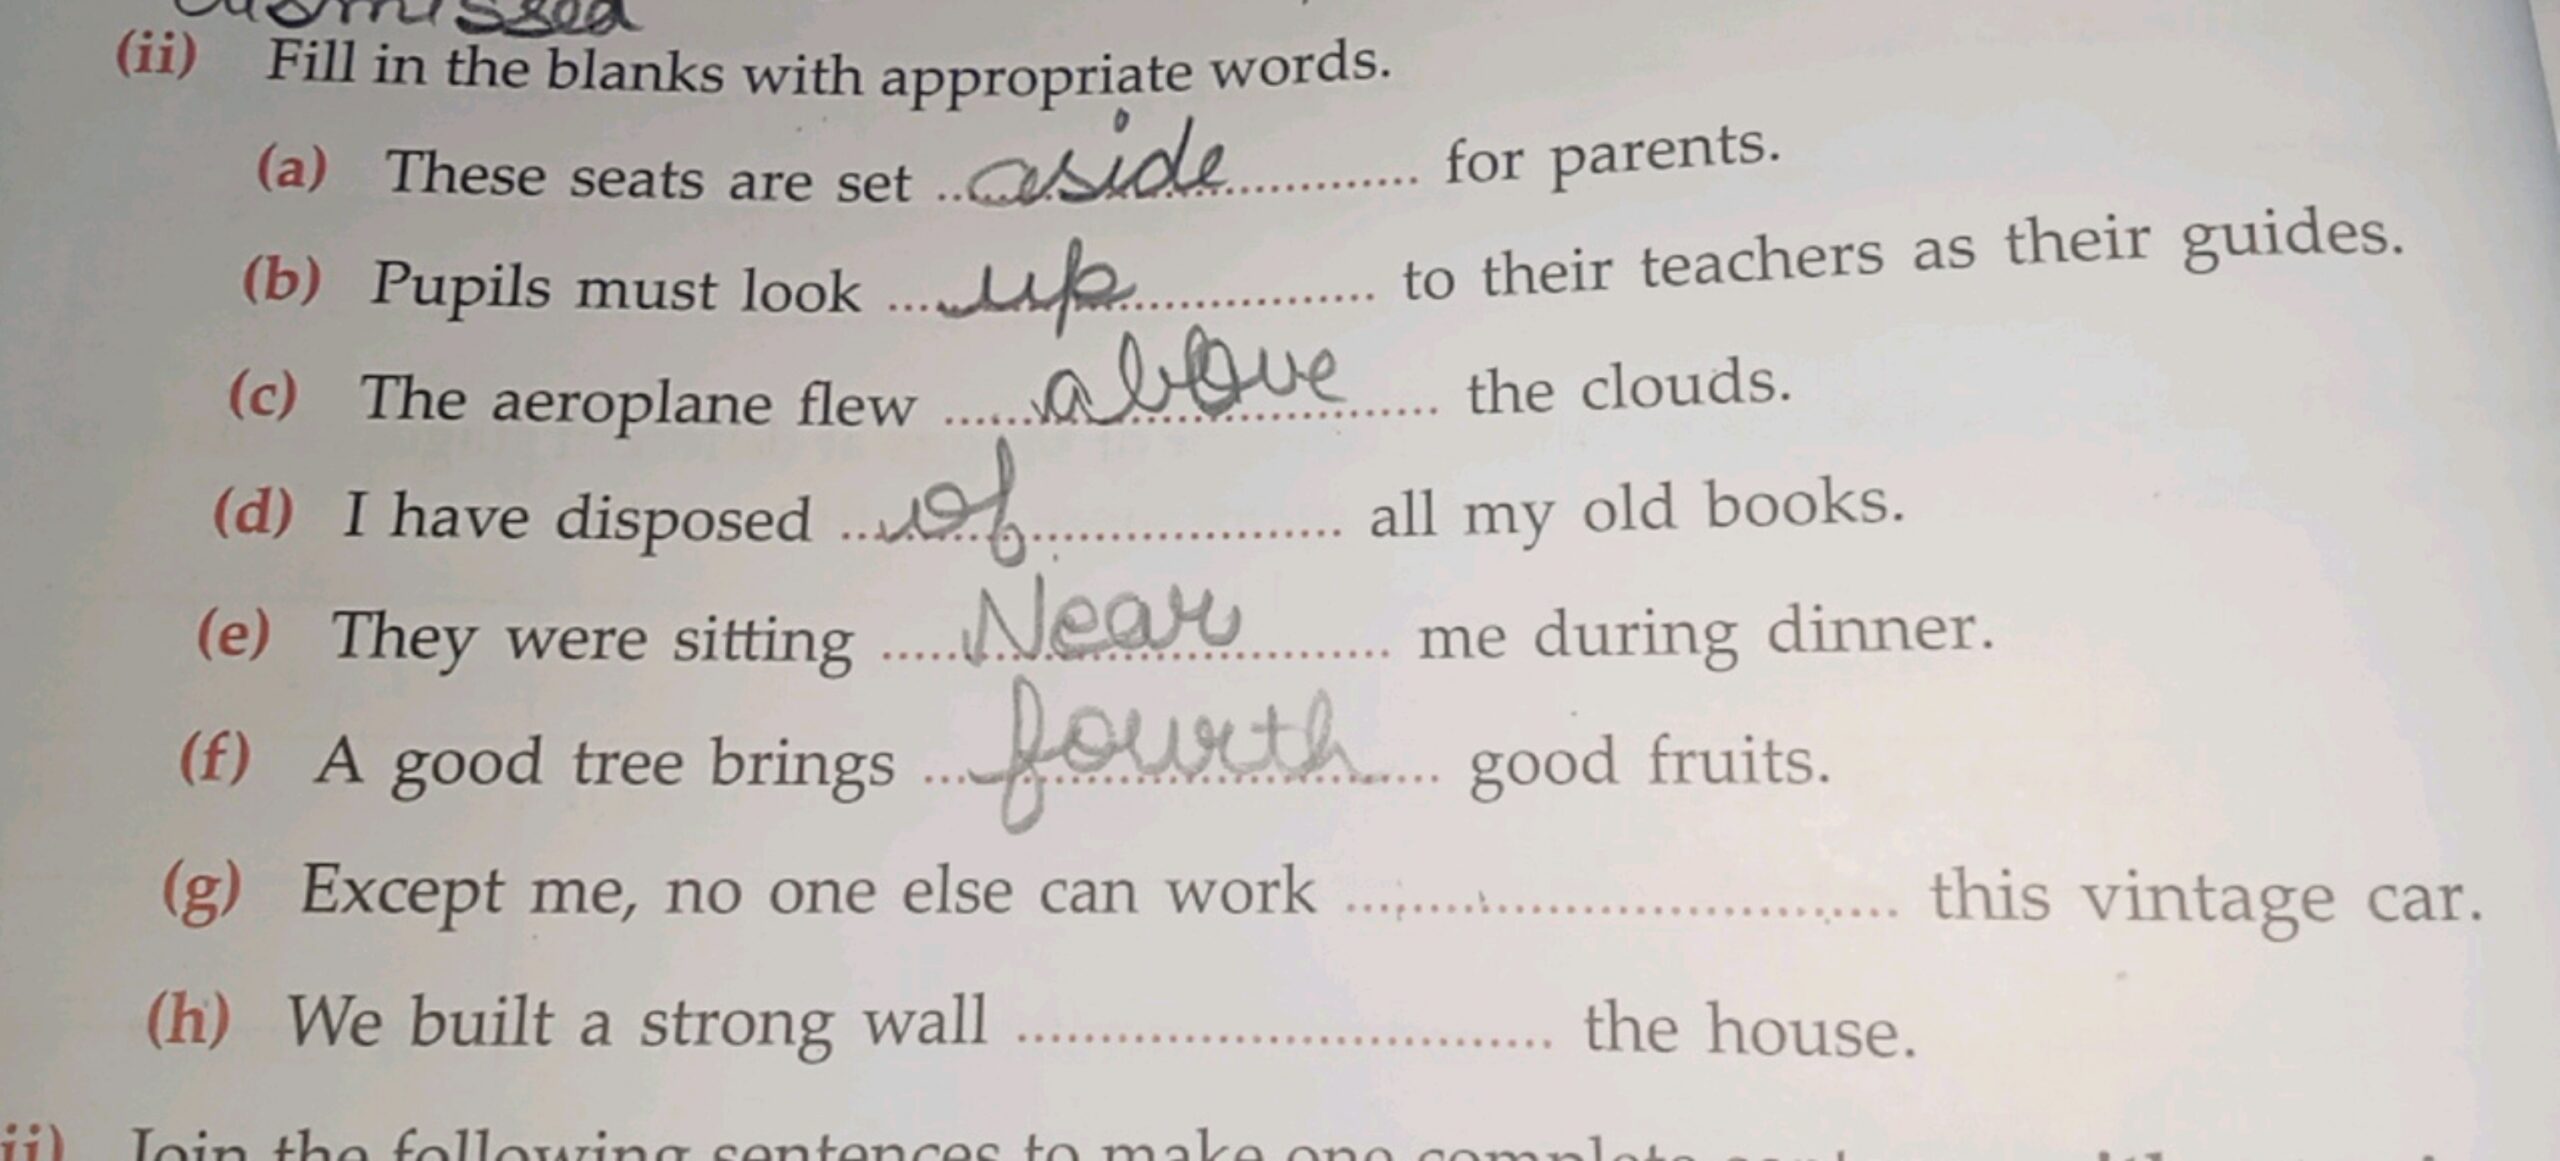 (ii) Fill in the blanks with appropriate words.
(a) These seats are set ..aside.......... for parents.
(b) Pupils must look ....up.......... to their teachers as their guides.
(c) The aeroplane flew ......above...... the clouds.
(d) I have disposed ...of.......... all my old books.
(e) They were sitting .....Near........ me during dinner.
(f) A good tree brings ....fourth..... good fruits.
(g) Except me, no one else can work .............................. this vintage car.
(h) We built a strong wall .............................. the house.
ii) Join the following sentences to make one